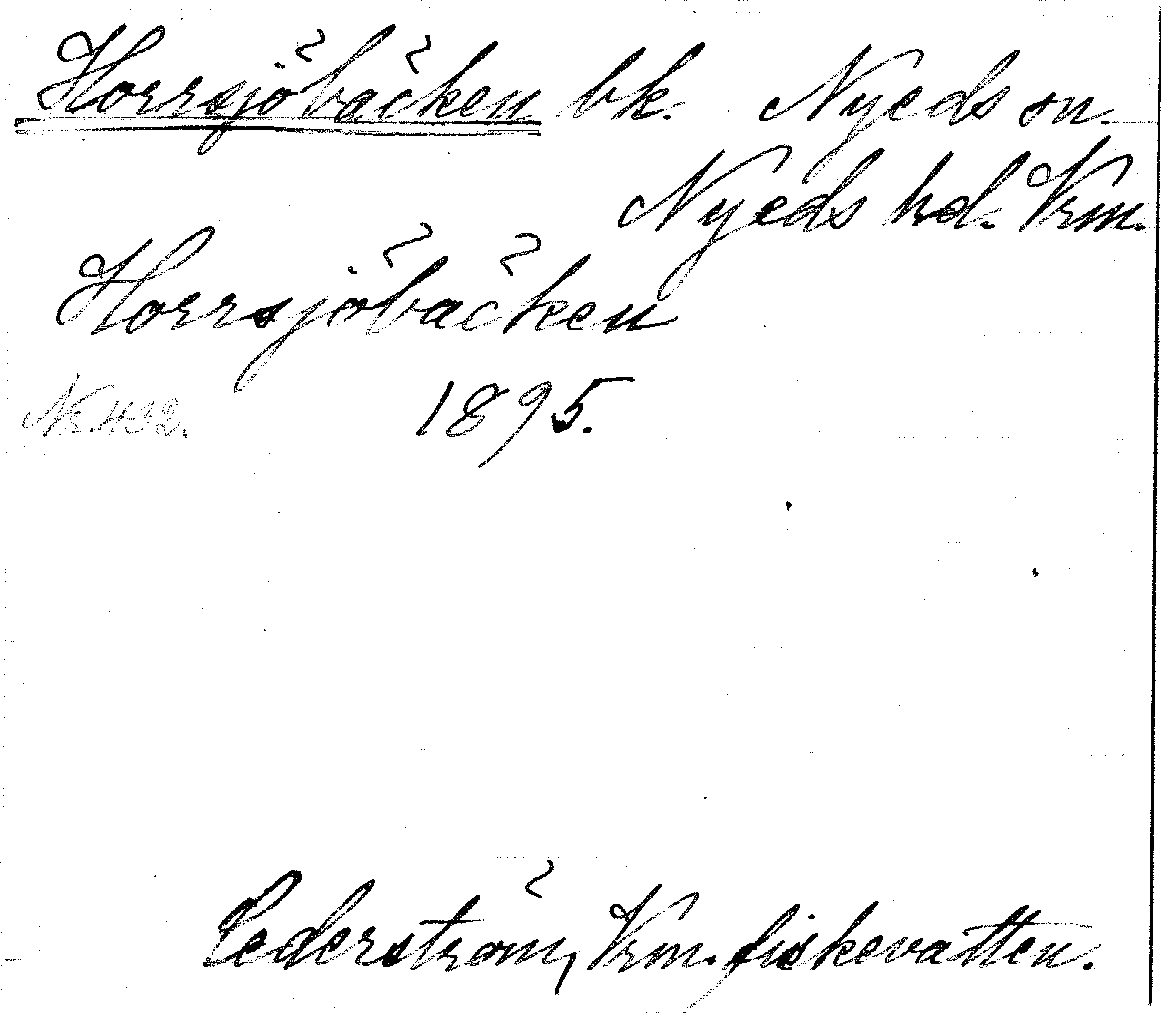 Horrsjöbäcken bk. Nyeds sn.
Nyeds hd. Vrm.
Horrsjöbäcken
Nr. 432. 1895.
Cederström, Vrm. fiskevatten.